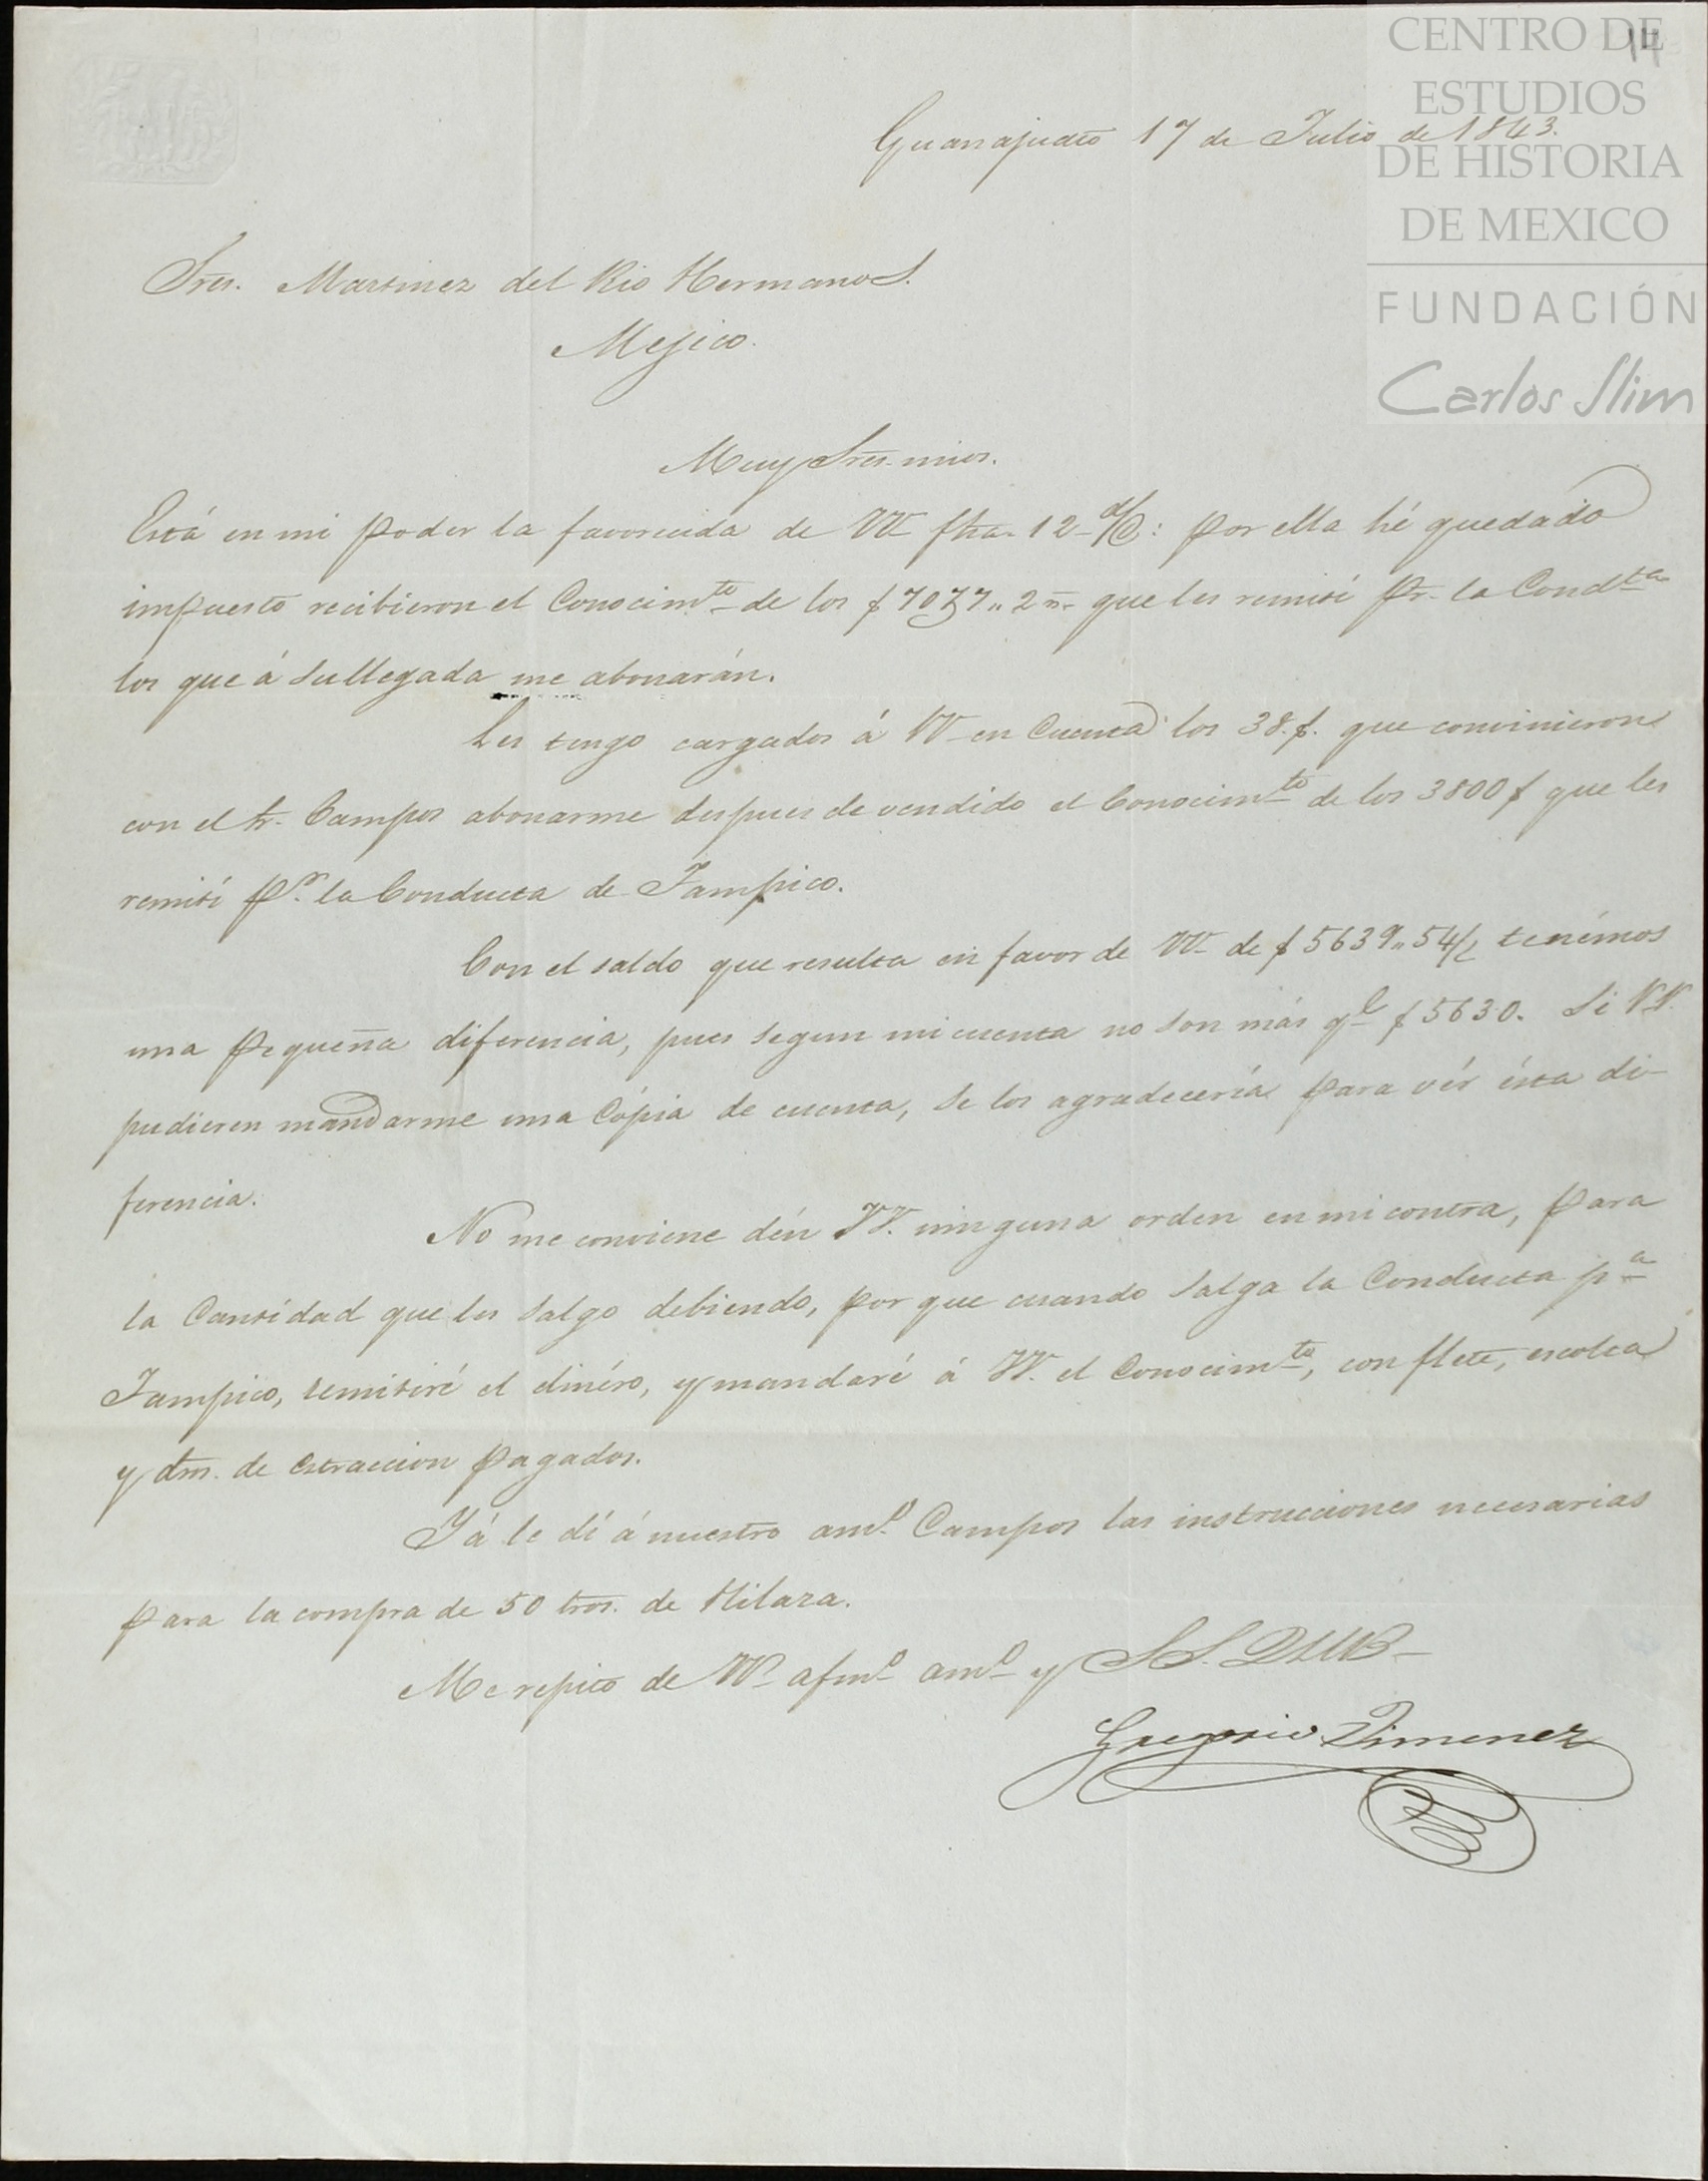 CENTRO DE
ESTUDIOS
DE HISTORIA
DE MEXICO
FUNDACIÓN
Carlos Slim
Guanajuato 17 de Julio de 1843.
Sres. Martinez del Rio Hermanos.
Mejico.
Muy Sres. mios.
Está en mi poder la favorecida de VV fha. 12 : por ella hé quedado
impuesto recibieron el Conocimto de los $ 7037,, 2 rs. que les remití pr. la Condta
los que á su llegada me abonarán.
Les tengo cargados á VV en Cuenta los 38.$. que convinieron
con el Sr. Campos abonarme despues de vendido el Conocimto de los 3800 $ que les
remití pr. la Conducta de Tampico.
Con el saldo que resulta en favor de VV de $ 5639,, 5 4/2 tenémos
una pequeña diferencia, pues segun mi cuenta no son más qe $ 5630. Si VV.
pudieren mandarme una Cópia de cuenta, se los agradecería para vér ésta di-
ferencia.
No me conviene dén VV. ninguna orden en mi contra, para
la Cantidad que les salgo debiendo, por que cuando salga la Conducta pa
Tampico, remitiré el dinéro, y mandaré á VV. el Conocimto, con flete, escolta
y dros. de estraccion pagados.
Yá le dí á nuestro amo. Campos las instrucciones necesarias
para la compra de 50 tros. de Hilaza.
Me repito de VV afmo amo y S.S. Q.S.M.B.
Gregorio Jimenez